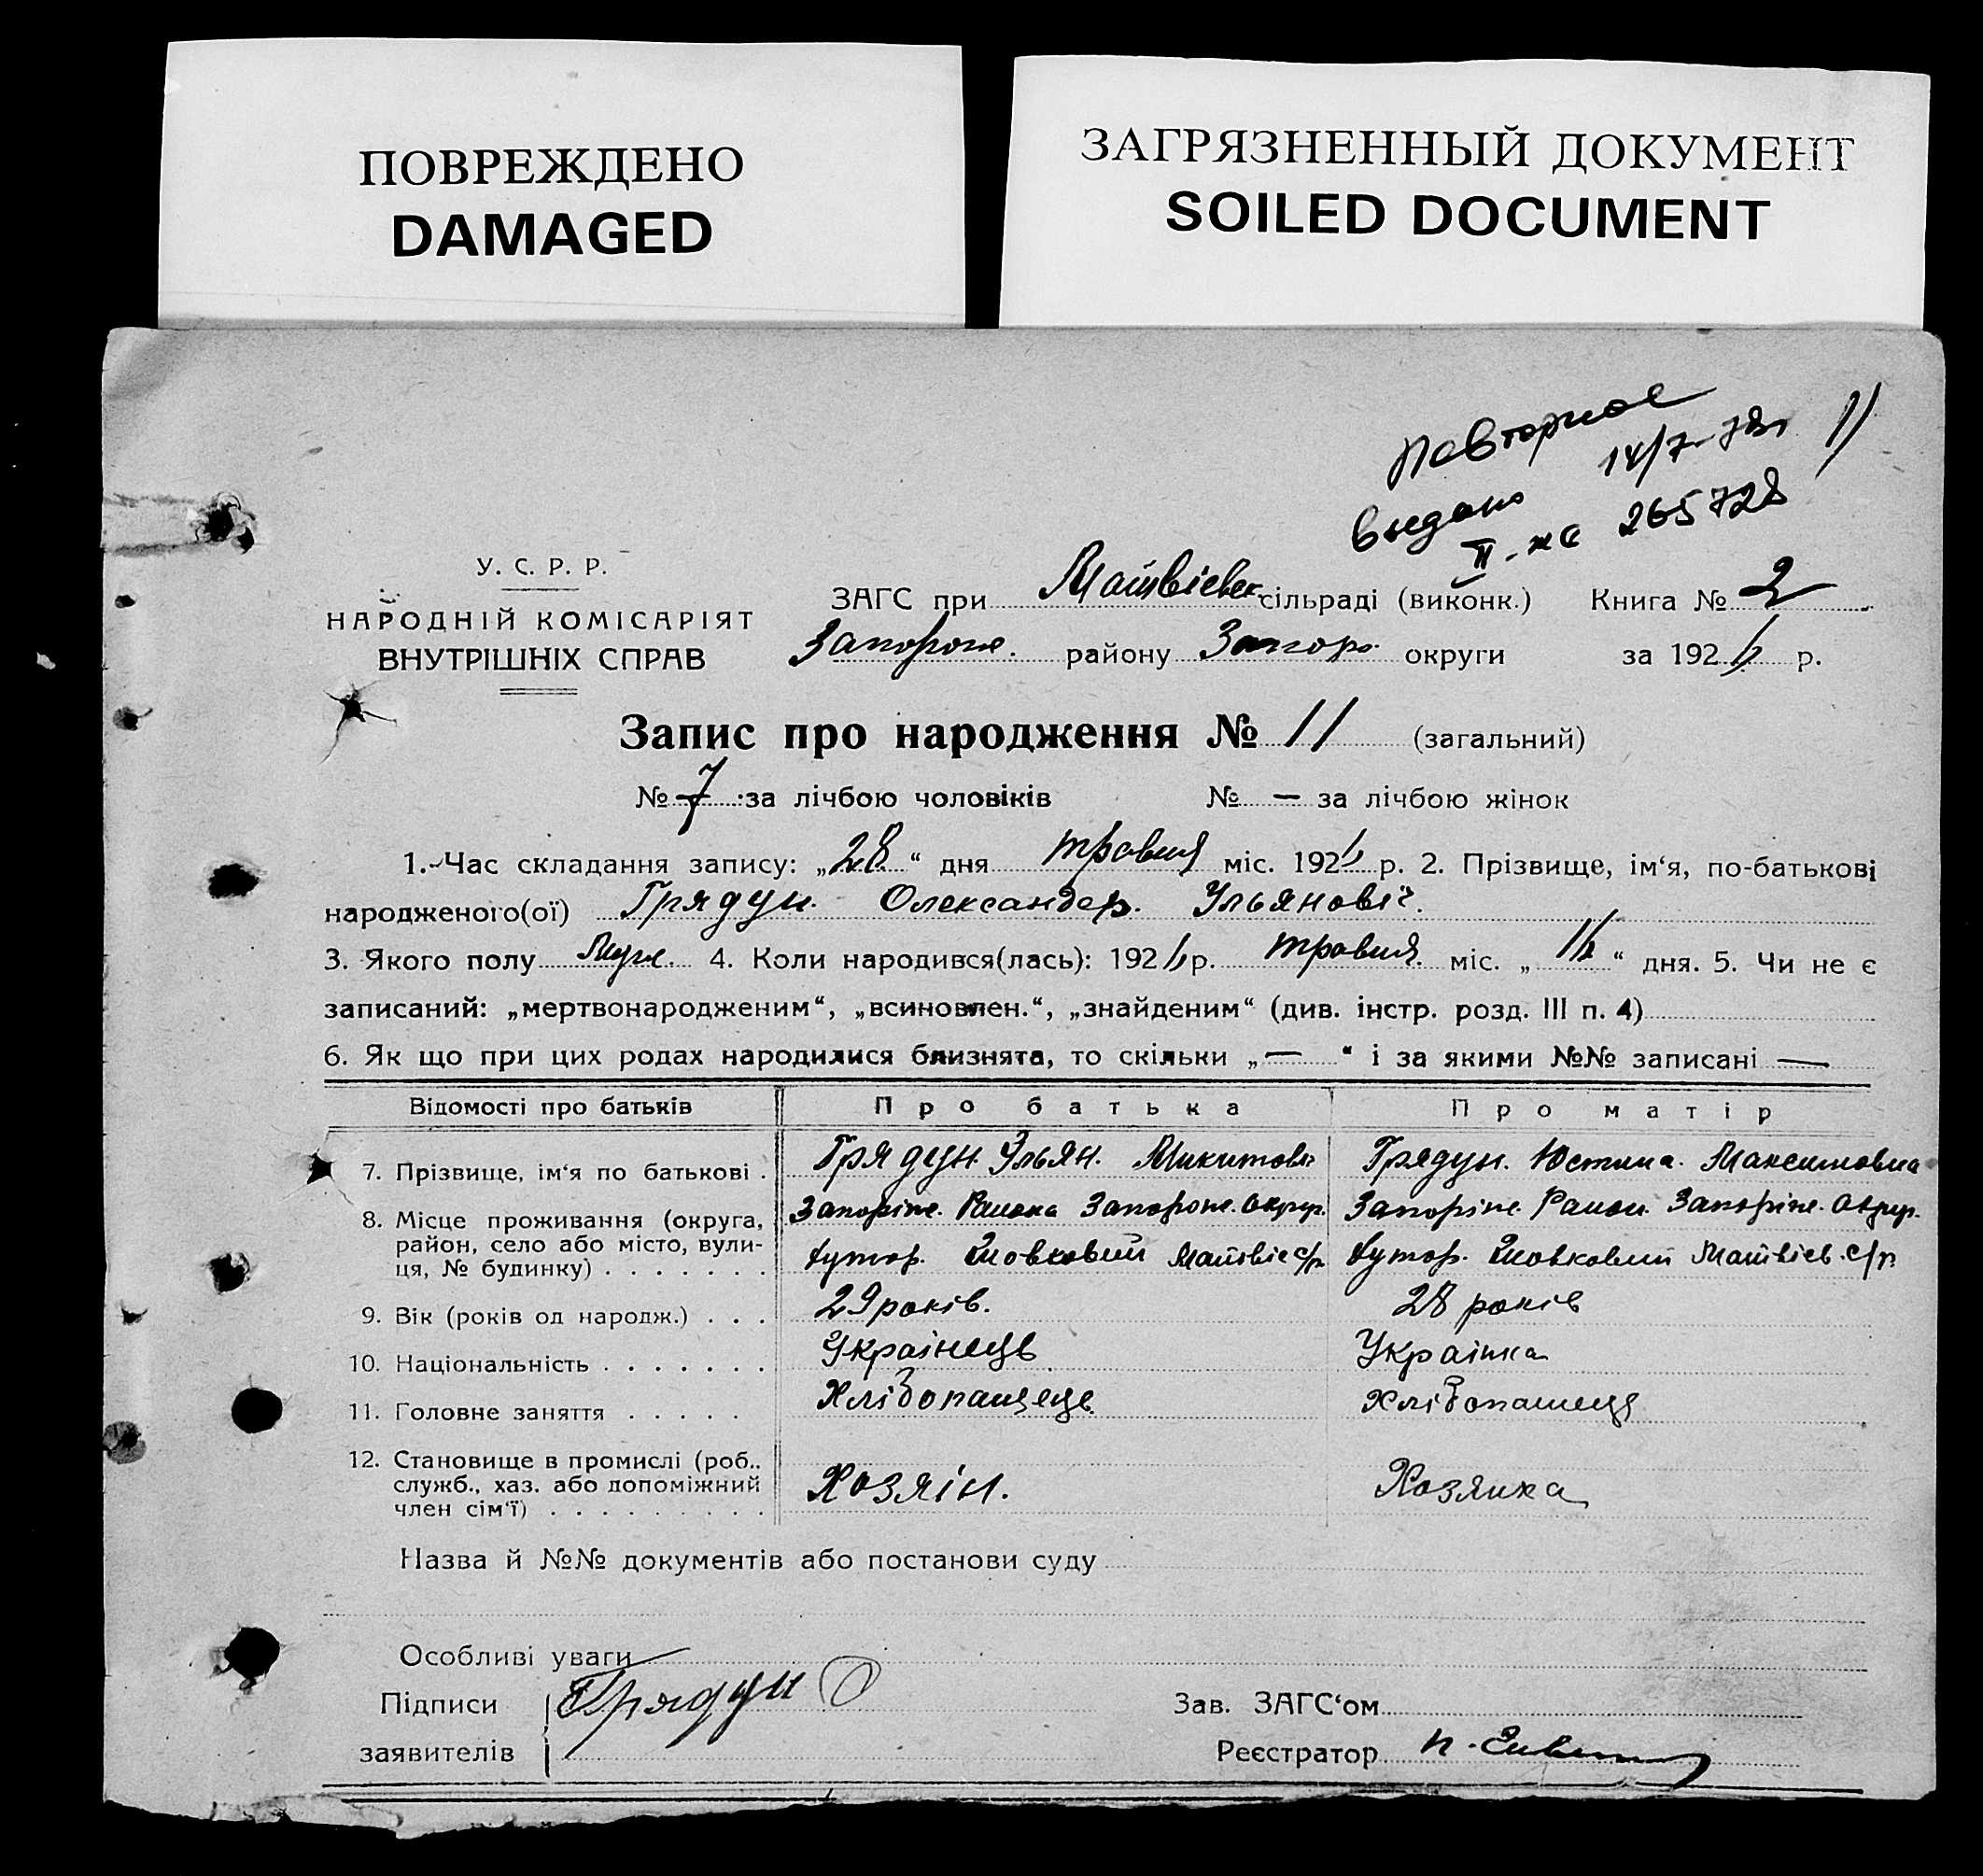 ПОВРЕЖДЕНО
DAMAGED
ЗАГРЯЗНЕННЫЙ ДОКУМЕНТ
SOILED DOCUMENT
Повторное 11
выдано 14/7-
II-ЖС 265728
У. С. Р. Р.
НАРОДНІЙ КОМІСАРІЯТ
ВНУТРІШНІХ СПРАВ
ЗАГС при Матвієвск. сільраді (виконк.) Книга № 2
Запорож. району Запоро. округи за 1926 р.
Запис про народження № 11 (загальний)
№ 7 за лічбою чоловіків № — за лічбою жінок
1. Час складання запису: „28“ дня травня міс. 1926 р. 2. Прізвище, ім‘я, по-батькові
народженого(ої) Грядун. Олександер. Ульяновіч.
3. Якого полу Муж. 4. Коли народився(лась): 1926 р. травня. міс. „16“ дня. 5. Чи не є
записаний: „мертвонародженим“, „всиновлен.“, „знайденим“ (див. інстр. розд. III п. 4)
6. Як що при цих родах народилися близнята, то скільки „—“ і за якими №№ записані —
Відомості про батьків Про батька Про матір
7. Прізвище, ім‘я по батькові . Грядун. Ульян. Микитов. Грядун. Юстина. Максимовна
8. Місце проживання (округа, район, село або місто, вулиця, № будинку) . . . . . . .
Запоріж. Района Запорож. Округ. Запоріж. Район. Запоріж. Округ.
хутор. Шовковий Матвіє с/р хутор. Шовковий Матвієв. с/р.
9. Вік (років од народж.) . . . 29 років. 28 років
10. Національність . . . . . . . Українець Українка
11. Головне заняття . . . . . Хлібопашець Хлібопашець
12. Становище в промислі (роб..
служб., хаз. або допоміжний
член сім‘ї) . . . . . . . . . Хозяін. Хозяйка
Назва й №№ документів або постанови суду
Особливі уваги
Підписи Грядун Зав. ЗАГС‘ом
заявителів Реєстратор